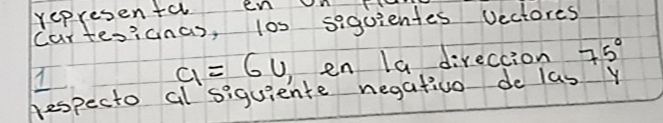 representa en un
cartesianas, los siguientes Vectores
1 a = 6U, en la direccion 75°
respecto al siguiente negativo de las y